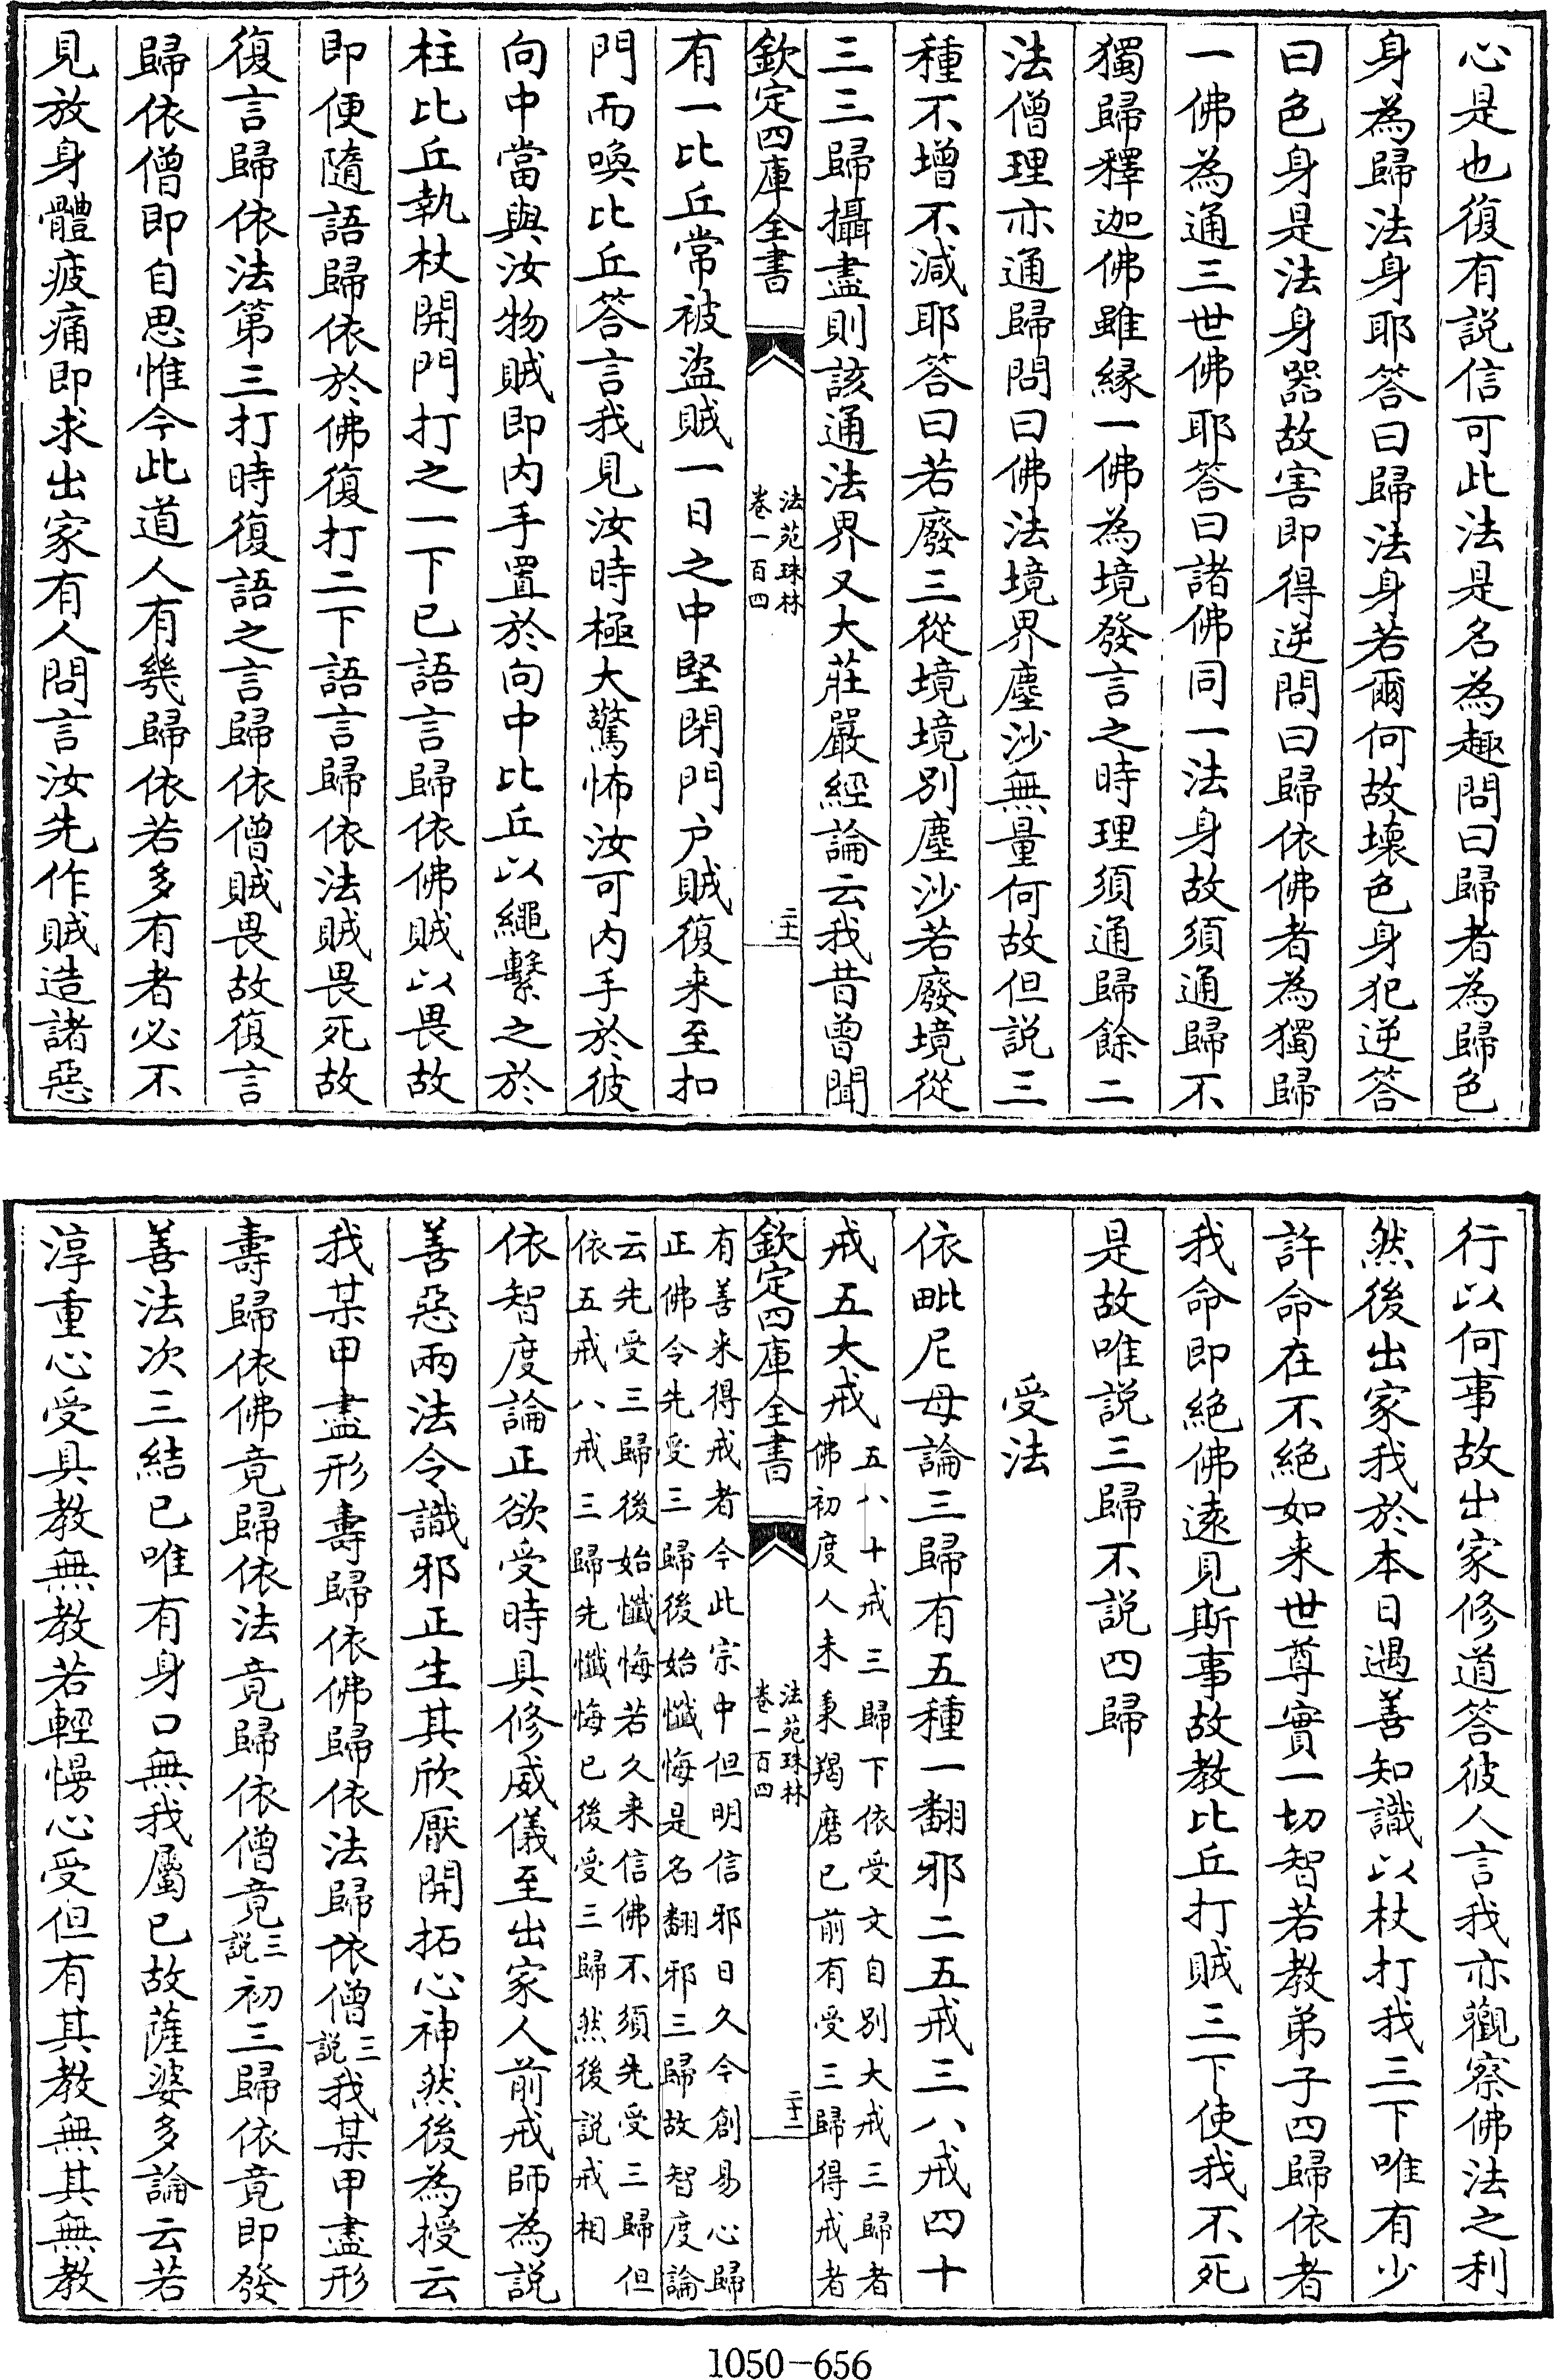 心是也復有説信可此法是名為趣問曰歸者為歸色
身為歸法身耶答曰歸法身若爾何故壊色身犯逆答
曰色身是法身器故害即得逆問曰歸依佛者為獨歸
一佛為通三世佛耶答曰諸佛同一法身故須通歸不
獨歸釋迦佛雖縁一佛為境發言之時理須通歸餘二
法僧理亦通歸問曰佛法境界塵沙無量何故但説三
種不增不減耶答曰若廢三從境境別塵沙若廢境從
三三歸攝盡則該通法界又大莊嚴經論云我昔曾聞
欽定四庫全書
法苑珠林
卷一百四
二十一
有一比丘常被盜賊一日之中堅閉門户賊復来至扣
門而喚比丘答言我見汝時極大驚怖汝可内手於彼
向中當與汝物賊即内手置於向中比丘以繩繫之於
柱比丘執杖開門打之一下已語言歸依佛賊以畏故
即便隨語歸依於佛復打二下語言歸依法賊畏死故
復言歸依法第三打時復語之言歸依僧賊畏故復言
歸依僧即自思惟今此道人有幾歸依若多有者必不
見放身體疲痛即求出家有人問言汝先作賊造諸惡
行以何事故出家修道答彼人言我亦觀察佛法之利
然後出家我於本日遇善知識以杖打我三下唯有少
許命在不絶如来世尊實一切智若教弟子四歸依者
我命即絶佛遠見斯事故教比丘打賊三下使我不死
是故唯説三歸不説四歸
受法
依毗尼母論三歸有五種一翻邪二五戒三八戒四十
戒五大戒五八十戒三歸下依受文自別大戒三歸者
佛初度人未秉羯磨已前有受三歸得戒者
欽定四庫全書
法苑珠林
卷一百四
二十二
有善来得戒者今此宗中但明信邪日久今創易心歸
正佛令先受三歸後始懺悔是名翻邪三歸故智度論
云先受三歸後始懺悔若久来信佛不須先受三歸但
依五戒八戒三歸先懺悔已後受三歸然後説戒相
依智度論正欲受時具修威儀至出家人前戒師為説
善惡兩法令識邪正生其欣厭開拓心神然後為授云
我某甲盡形壽歸依佛歸依法歸依僧三説我某甲盡形
壽歸依佛竟歸依法竟歸依僧竟三説初三歸依竟即發
善法次三結已唯有身口無我屬已故薩婆多論云若
淳重心受具教無教若輕慢心受但有其教無其無教
1050-656